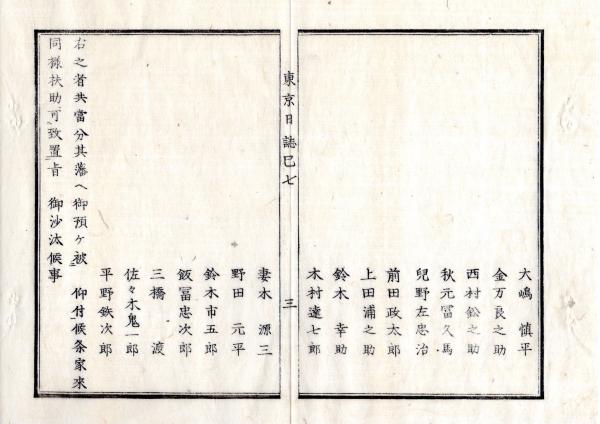 大嶋 慎平
金万良之助
西村鉛之助
秋元冨久馬
兒野左忠治
前田政太郎
上田浦之助
鈴木 幸助
木村達七郎
東京日誌巳七
三
妻木 源三
野田 元平
鈴木市五郎
飯冨忠次郎
三橋 渡
佐々木鬼一郎
平野鉃次郎
右之者共當分其藩ヘ御預ケ被 仰付候条家來
同樣扶助可致置旨 御沙汰候事